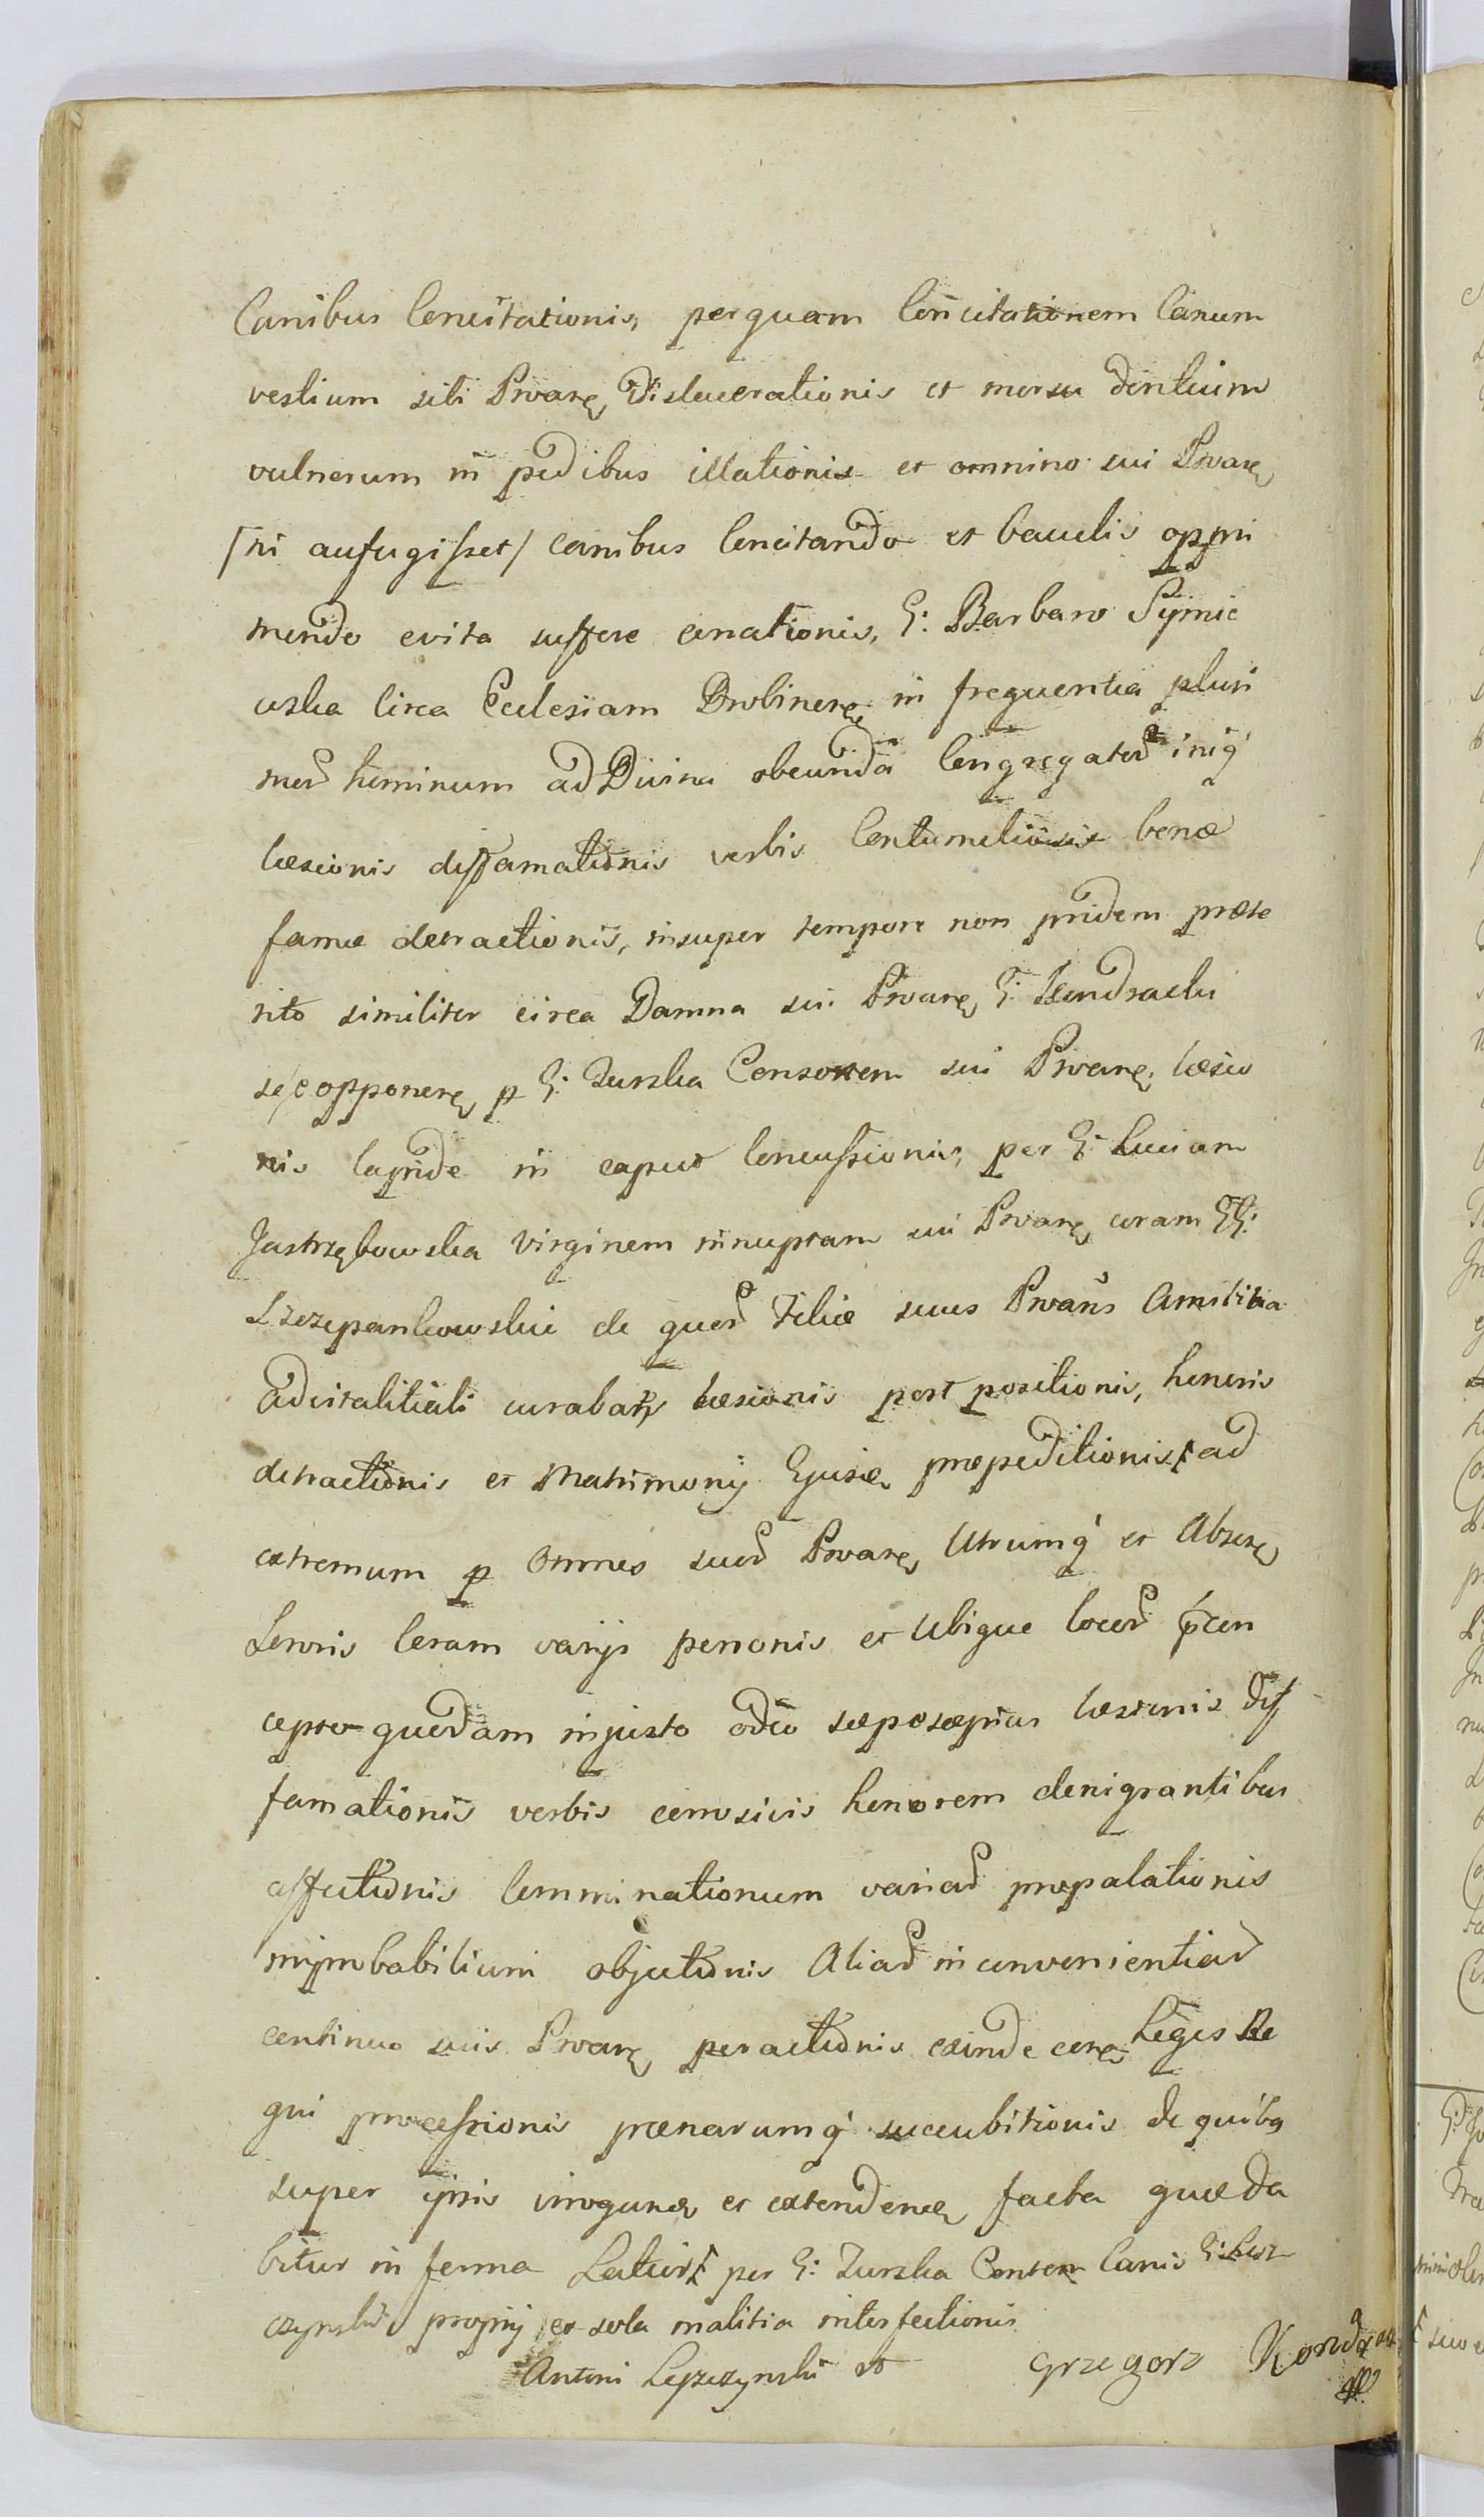 Canibus Concitationis, per quam Concitationem Canum
vestium sibi Pwarę Dislacerationis et morsu dentium
vulnerum in pedibus illationis et omnino sui Pwarę
/ni aufugisset/ canibus Concitando et baculis oppri
mendo e vita suffere conationis, G: Barbaro Symic
uska Circa Ecclesiam Drobinens in frequentia pluri
mor hominum ad Divina obeunda Congregator iniq
læsionis diffamationis verbis Contumeliosis bonæ
famæ detractionis, insuper tempore non pridem præte
rito similiter circa Damna sui Pwarę G: Kondracki
sese opponerę p G: Turska Consortem sui Pwarę læsio
nis lapide in caput Concussionis, per G: Luciam
Jastrzębowska Virginem innuptam sui Pwarę coram GG:
Szczepankowskie de quor Filiæ suus Pwans Amicitia
advitalitiali curabatr læsionis post positionis, honoris
detractionis et Matrimonij Ejusę præpeditionis, ad
extremum p Omnes suor Pwarę Utrumq et Absę
Servis Coram varijs personis et Ubique locor p̃con
cepto quodam injusto odio sæpesæpius læsionis dif
famationis verbis corrosivis honorem denigrantibus
affectionis Comminationum variar propalationis
improbabilium objectionis Aliar inconvenientiar
continuo suis Pwarę peractionis exinde conę Leges Re
gni processionis pænarumq succubitionis de quibq
super ipsis irrogunę et extendenę facta quæ da
bitur in forma Latiori per G: Turska Consortem Canis G: Lesz
czynski proprij ex sola malitia interfectionis
Antoni Leszczynski
Grzegorz Kondra